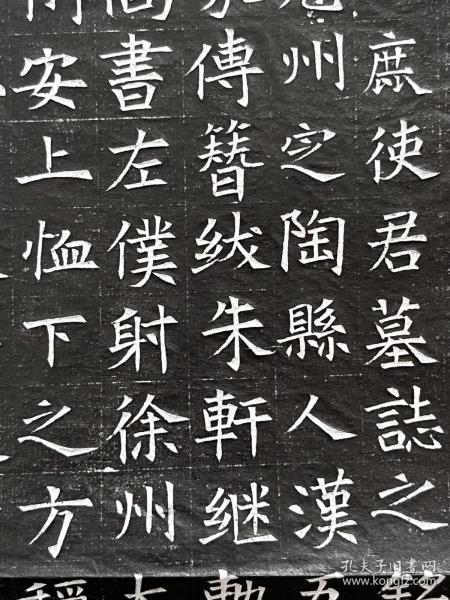 庶使君墓誌之
州定陶縣人漢
傳簪紱朱軒継
書左僕射徐州
安上恤下之方
孔夫子旧书网
www.kongfz.com